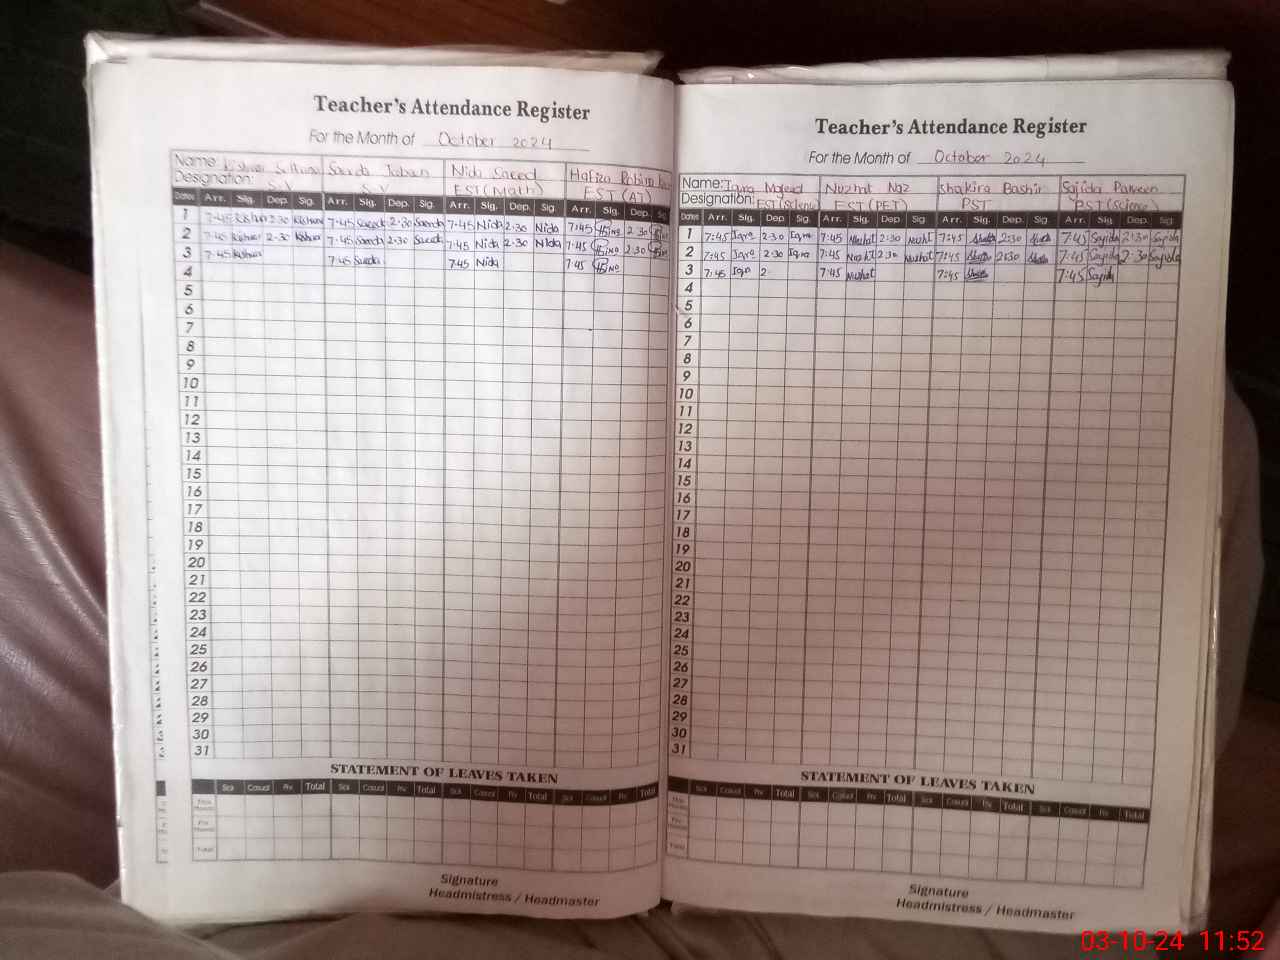 Teacher's Attendance Register
For the Month of October 2024
Name: Kishwar Sultana Saeeda Jaban Nida Saeed Hafiza Robina
Designation: S.V S.V EST(Math) EST(AT)
Dates Arr. Sig. Dep. Sig. Arr. Sig. Dep. Sig. Arr. Sig. Dep. Sig. Arr. Sig. Dep. Sig
1 7-45 Kishwar 2-30 Kishwar 7-45 Saeeda 2-30 Saeeda 7-45 Nida 2-30 Nida 7:45 2 30
2 7-45 Kishwar 2-30 Kishwar 7-45 Saeeda 2-30 Saeeda 7.45 Nida 2-30 Nida 7-45 2:30
3 7-45 Kishwar 7-45 Saeeda 7.45 Nida 7.45
4
5
6
7
8
9
10
11
12
13
14
15
16
17
18
19
20
21
22
23
24
25
26
27
28
29
30
31
STATEMENT OF LEAVES TAKEN
Sick Casual Prv Total Sick Casual Prv Total Sick Casual Prv Total Sick Casual Prv Total
This Month
Prv Month
Total
Signature
Headmistress / Headmaster
Teacher's Attendance Register
For the Month of October 2024
Name: Iqra Majeed Nuzhat Naz Shakira Bashir Sajida Parveen
Designation: EST(Science) EST(PET) PST PST(Science)
Dates Arr. Sig. Dep. Sig. Arr. Sig. Dep. Sig. Arr. Sig. Dep. Sig. Arr. Sig. Dep. Sig
1 7:45 Iqra 2-30 Iqra 7:45 Nuzhat 2:30 Nuzhat 7:45 2:30 7:45 Sajida 2:30 Sajida
2 7:45 Iqra 2-30 Iqra 7:45 Nuzhat 2:30 Nuzhat 7:45 2:30 7:45 Sajida 2:30 Sajida
3 7:45 Iqra 2 7:45 Nuzhat 7:45 7:45 Sajida
4
5
6
7
8
9
10
11
12
13
14
15
16
17
18
19
20
21
22
23
24
25
26
27
28
29
30
31
STATEMENT OF LEAVES TAKEN
Sick Casual Prv Total Sick Casual Prv Total Sick Casual Prv Total Sick Casual Prv Total
This Month
Prv Month
Total
Signature
Headmistress / Headmaster
03-10-24 11:52